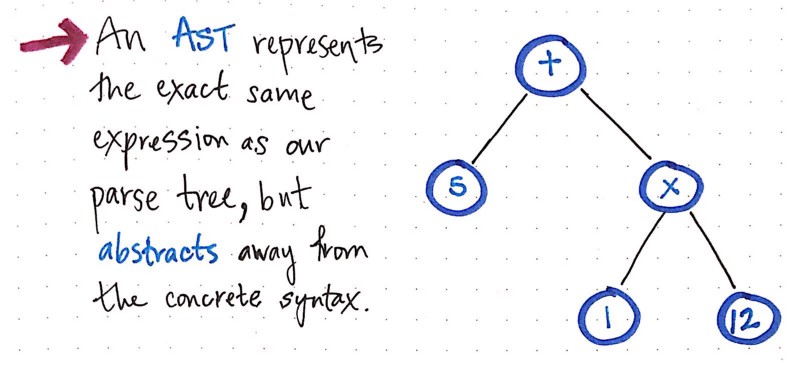 An AST represents
the exact same
expression as our
parse tree, but
abstracts away from
the concrete syntax.
+
5 x
1 12